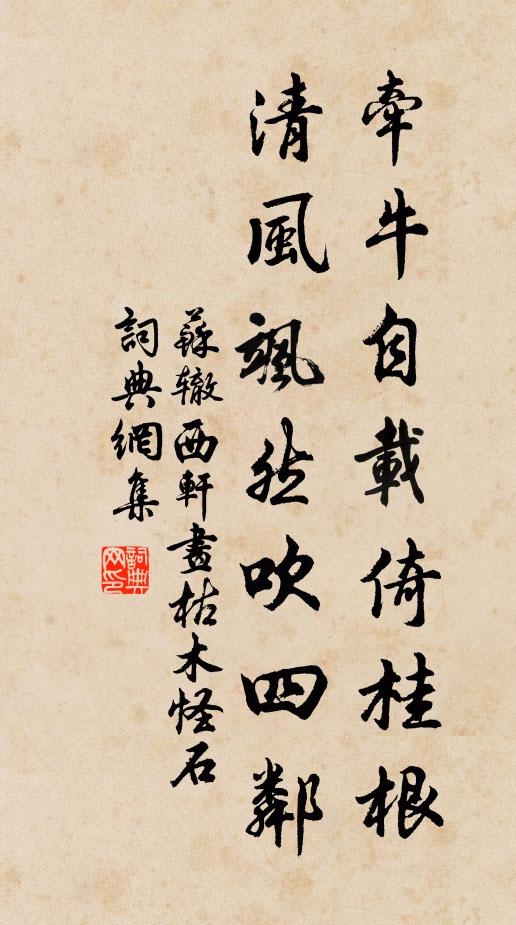 牽牛自載倚桂根
清風颯然吹四鄰
蘇辙西軒畫枯木怪石
詞典網集
詞典
网印